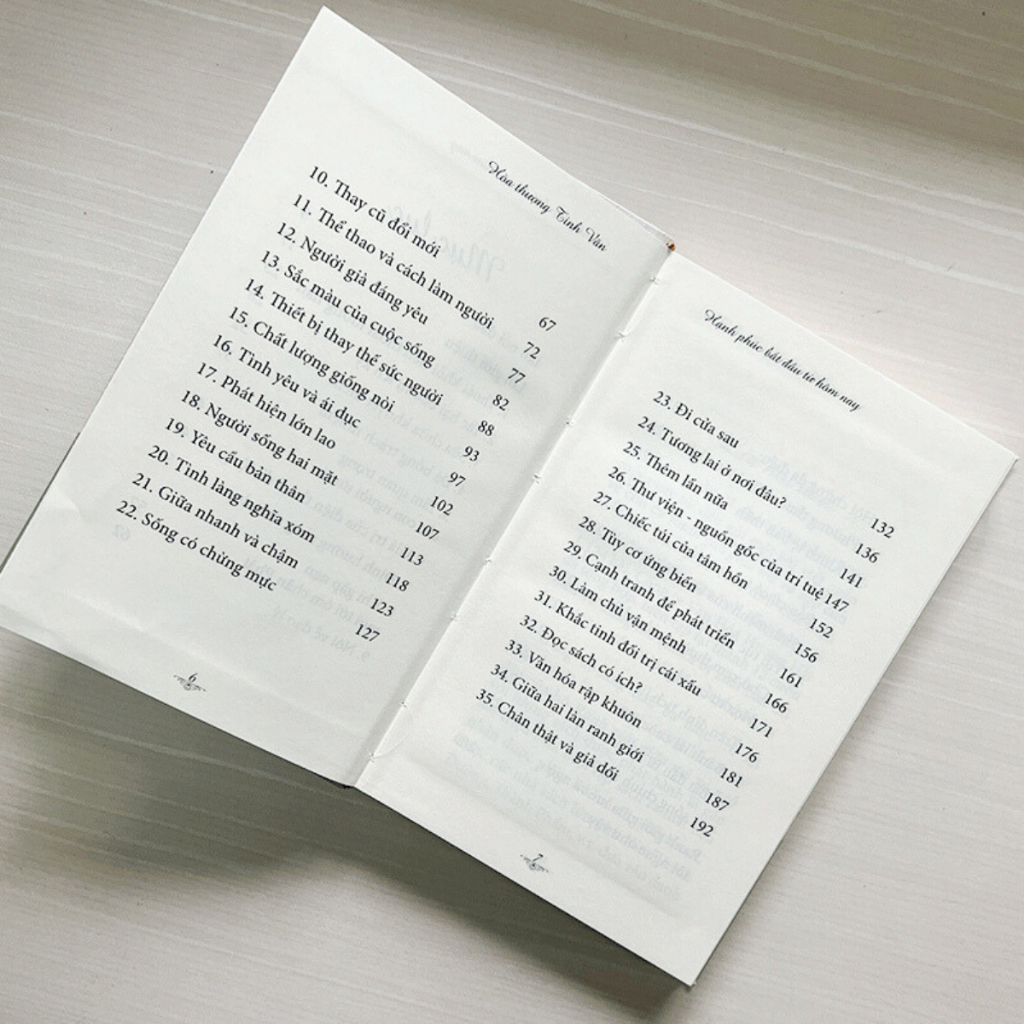 Hòa thượng Tinh Vân
10. Thay cũ đổi mới 67
11. Thể thao và cách làm người 72
12. Người già đáng yêu 77
13. Sắc màu của cuộc sống 82
14. Thiết bị thay thế sức người 88
15. Chất lượng giống nòi 93
16. Tình yêu và ái dục 97
17. Phát hiện lớn lao 102
18. Người sống hai mặt 107
19. Yêu cầu bản thân 113
20. Tình làng nghĩa xóm 118
21. Giữa nhanh và chậm 123
22. Sống có chừng mực 127
6
Hạnh phúc bắt đầu từ hôm nay
23. Đi cửa sau 132
24. Tương lai ở nơi đâu? 136
25. Thêm lần nữa 141
26. Thư viện - nguồn gốc của trí tuệ 147
27. Chiếc túi của tâm hồn 152
28. Tùy cơ ứng biến 156
29. Cạnh tranh để phát triển 161
30. Làm chủ vận mệnh 166
31. Khắc tinh đối trị cái xấu 171
32. Đọc sách có ích? 176
33. Văn hóa rập khuôn 181
34. Giữa hai làn ranh giới 187
35. Chân thật và giả dối 192
7